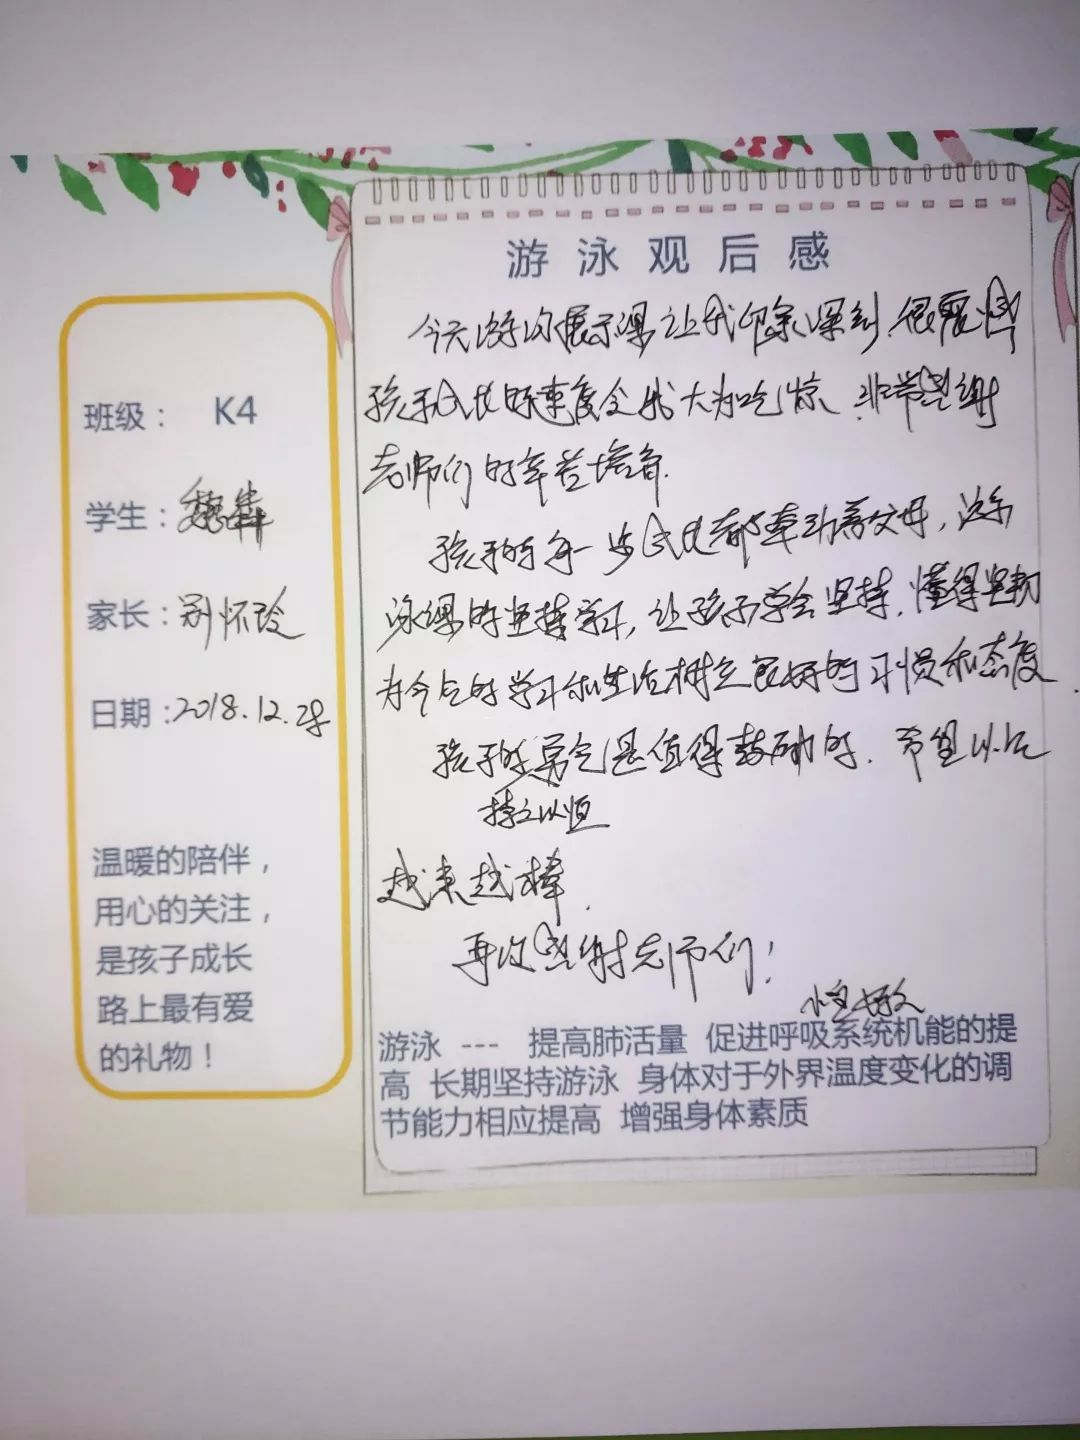 游泳观后感
班级： K4
学生：魏犇
家长：别怀玲
日期：2018.12.28
温暖的陪伴，
用心的关注，
是孩子成长
路上最有爱
的礼物！
今天游泳展示课让我印象深刻.很震憾
孩子成长的速度令我大为吃惊.非常感谢
老师们的辛苦培育.
孩子的每一步成长都牵动着父母，游
泳课的坚持学习，让孩子学会坚持.懂得坚韧
为今后的学习和生活树立良好的习惯和态度.
孩子的勇气是值得鼓励的.希望以后
持之以恒
越来越棒.
再次感谢老师们！
游泳 --- 提高肺活量 促进呼吸系统机能的提
高 长期坚持游泳 身体对于外界温度变化的调
节能力相应提高 增强身体素质